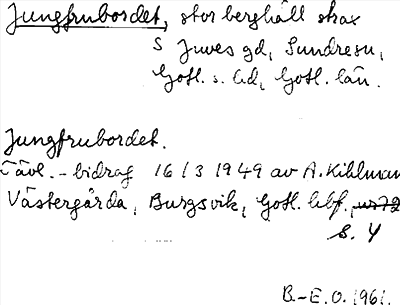 Jungfrubordet, stor berghäll strax
S Juves gd, Sundresn,
Gotl. s. hd, Gotl. län.
Jungfrubordet.
Tävl.-bidrag 16/3 1949 av A. Kihlman
Västergårda, Burgsvik, Gotl. hbf.,
S. 4
B.-E. O. 1961.